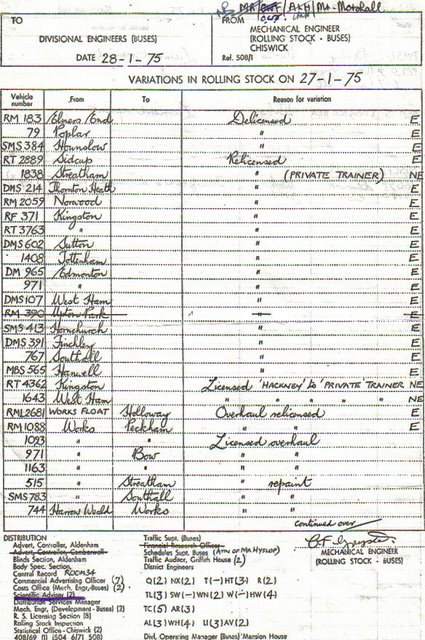 TO
DIVISIONAL ENGINEERS (BUSES)
DATE 28-1-75
FROM
MECHANICAL ENGINEER
(ROLLING STOCK - BUSES)
CHISWICK
Ref. 508/1
VARIATIONS IN ROLLING STOCK ON 27-1-75
Vehicle number From To Reason for variation
RM 183 Elmers End Delicensed E
79 Poplar " E
SMS 384 Hounslow " E
RT 2889 Sidcup Relicensed E
1838 Streatham " (PRIVATE TRAINER) NE
DMS 214 Thornton Heath " E
RM 2059 Norwood " E
RF 371 Kingston " E
RT 3763 " " E
DMS 602 Sutton " E
1408 Tottenham " E
DM 965 Edmonton " E
971 " " E
DMS 107 West Ham " E
RM 390 Upton Park " E
SMS 413 Hornchurch " E
DMS 391 Finchley " E
767 Southall " E
MBS 565 Hanwell " E
RT 4362 Kingston Licensed 'HACKNEY' to 'PRIVATE TRAINER NE
1643 West Ham " " " " NE
RML 2681 WORKS FLOAT Holloway Overhaul relicensed E
RM 1088 Works Peckham " E
1093 " " Licensed overhaul
971 " Bow "
1163 " " "
515 " Streatham " repaint
SMS 783 " Southall " "
744 Harrow Weald Works
continued over
DISTRIBUTION
Advert. Controller, Aldenham
Advert. Controller, Camberwell
Blinds Section, Aldenham
Body Spec. Section,
Central Record ROOM 34
Commercial Advertising Officer (7)
Costs Office (Mech. Engr.-Buses) (2)
Scientific Adviser (2)
Distribution Services Manager
Mech. Engr. (Development - Buses)
R. S. Licensing Section (8)
Rolling Stock Inspection
Statistical Office - Chiswick (2)
Traffic Supt. (Buses)
Financial Research Officer
Schedules Supt. Buses (ATTN OF MR HYSLOP)
Traffic Auditor, Griffith House (2)
MECHANICAL ENGINEER
(ROLLING STOCK - BUSES)
Q(2) NX(2) T(-) HT(3) R(2)
TL(3) SW(-) WN(2) W(-) HW(4)
TC(5) AR(3)
AL(3) WH(4) U(3) AV(2)
Divl. Operating Manager (Buses) Mansion House